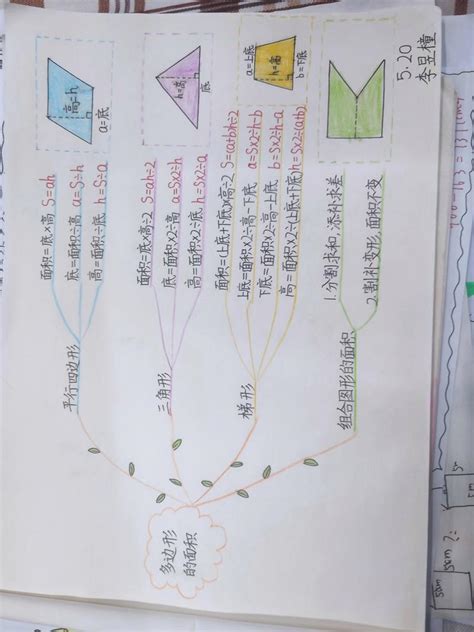 5.20
李昱橦
多边形
的面积
平行四边形
面积=底×高 S=ah
底=面积÷高 a=S÷h
高=面积÷底 h=S÷a
高=h
a=底
三角形
面积=底×高÷2 S=ah÷2
底=面积×2÷高 a=S×2÷h
高=面积×2÷底 h=S×2÷a
h=高
底
梯形
面积=(上底+下底)×高÷2 S=(a+b)h÷2
上底=面积×2÷高-下底 a=S×2÷h-b
下底=面积×2÷高-上底 b=S×2÷h-a
高=面积×2÷(上底+下底) h=S×2÷(a+b)
a=上底
h=高
b=下底
组合图形的面积
1.分割求和,添补求差
2.割补变形,面积不变
5cm